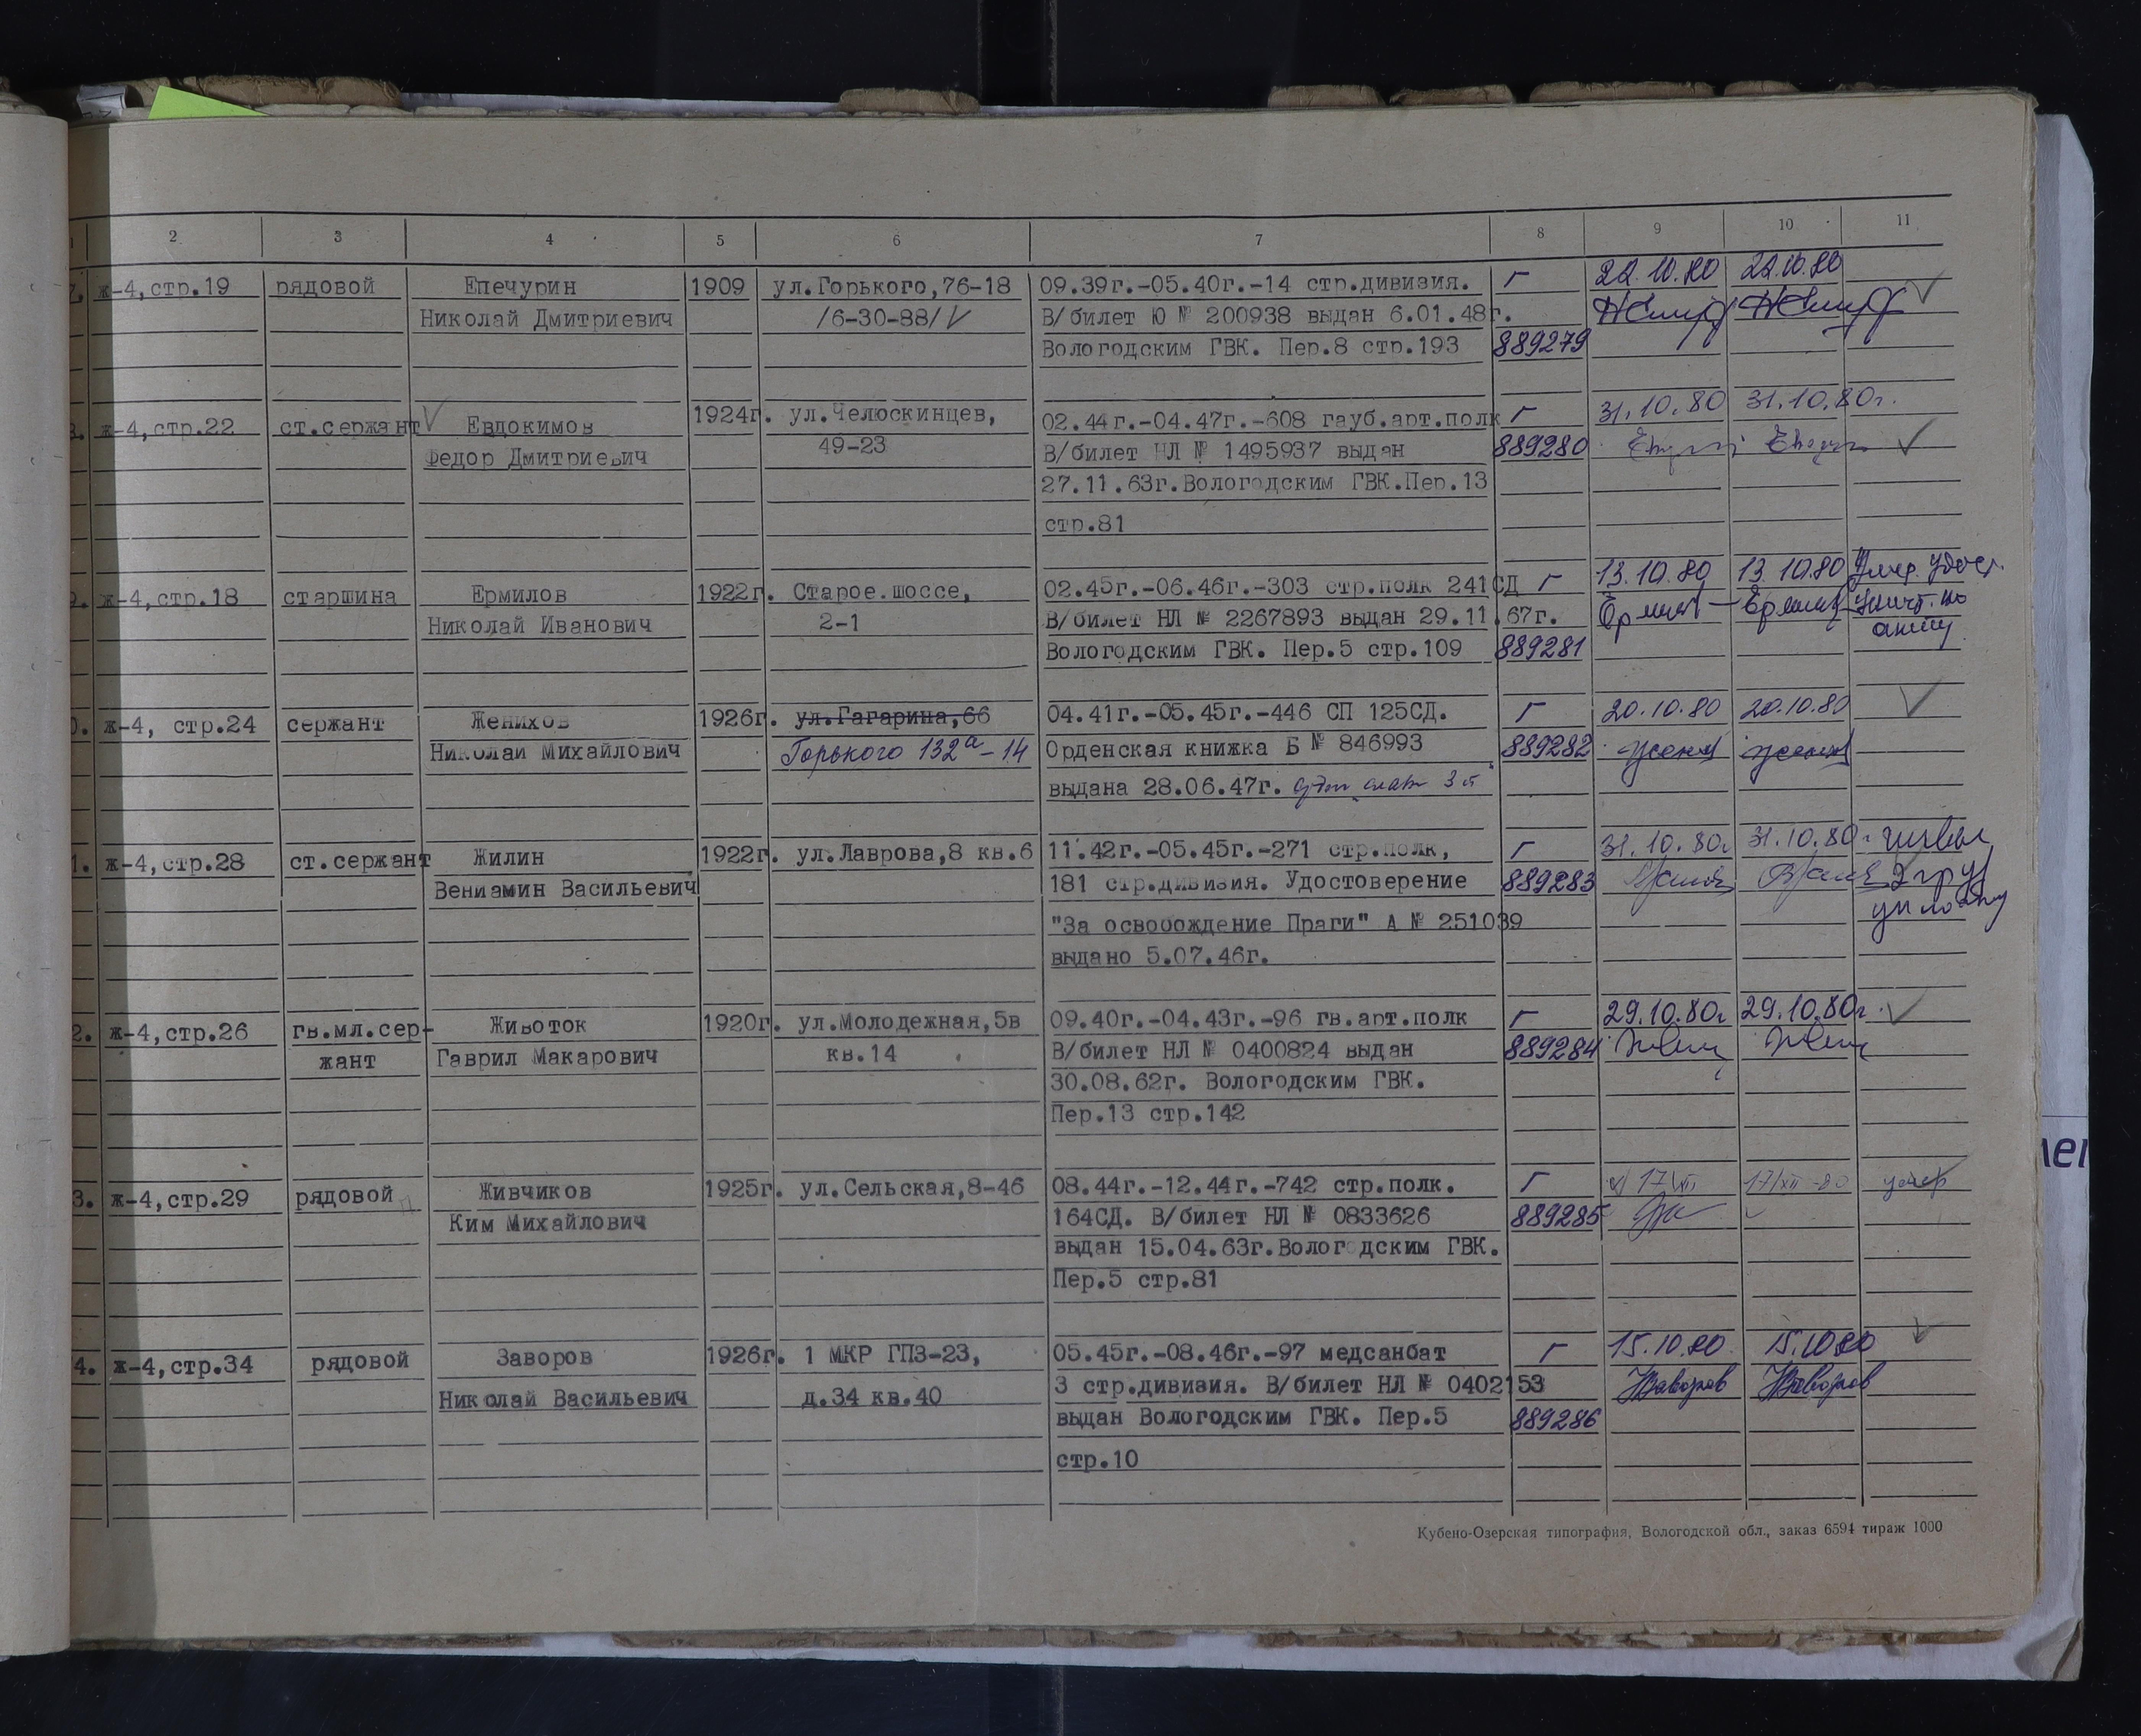 1 2 3 4 5 6 7 8 9 10 11
7. ж-4,стр.19 рядовой Епечурин 1909 ул.Горького,76-18 09.39г.-05.40г.-14 стр.дивизия. г 22.10.80 22.10.80
Николай Дмитриевич /6-30-88/ В/билет Ю № 200938 выдан 6.01.48г.
Вологодским ГВК. Пер.8 стр.193 889279
8. ж-4,стр.22 ст.сержант Евдокимов 1924г. ул.Челюскинцев, 02.44г.-04.47г.-608 гауб.арт.полк г 31.10.80 31.10.80г.
Федор Дмитриевич 49-23 В/билет НЛ № 1495937 выдан 889280
27.11.63г.Вологодским ГВК.Пер.13
стр.81
9. ж-4,стр.18 старшина Ермилов 1922г. Старое.шоссе, 02.45г.-06.46г.-303 стр.полк 241СД г 13.10.80 13.10.80 Умер. удост.
Николай Иванович 2-1 В/билет НЛ № 2267893 выдан 29.11.67г. уничт. по
Вологодским ГВК. Пер.5 стр.109 889281 акту
0. ж-4, стр.24 сержант Женихов 1926г. ул.Гагарина,66 04.41г.-05.45г.-446 СП 125СД. г 20.10.80 20.10.80
Николай Михайлович Горького 132а-14 Орденская книжка Б № 846993 889282
выдана 28.06.47г.
1. ж-4,стр.28 ст.сержант Жилин 1922г. ул.Лаврова,8 кв.6 11.42г.-05.45г.-271 стр.полк, г 31.10.80г 31.10.80г
Вениамин Васильевич 181 стр.дивизия. Удостоверение 889283
"За освооождение Праги" А № 251039
выдано 5.07.46г.
2. ж-4,стр.26 гв.мл.сер- Животок 1920г. ул.Молодежная,5в 09.40г.-04.43г.-96 гв.арт.полк г 29.10.80г 29.10.80г.
жант Гаврил Макарович кв.14 В/билет НЛ № 0400824 выдан 889284
30.08.62г. Вологодским ГВК.
Пер.13 стр.142
3. ж-4,стр.29 рядовой Живчиков 1925г. ул.Сельская,8-46 08.44г.-12.44г.-742 стр.полк. г 17/XII 17/XII-80 умер
Ким Михайлович 164СД. В/билет НЛ № 0833626 889285
выдан 15.04.63г.Вологодским ГВК.
Пер.5 стр.81
4. ж-4,стр.34 рядовой Заворов 1926г. 1 МКР ГПЗ-23, 05.45г.-08.46г.-97 медсанбат г 15.10.80 15.10.80
Николай Васильевич д.34 кв.40 3 стр.дивизия. В/билет НЛ № 0402153
выдан Вологодским ГВК. Пер.5 889286
стр.10
Кубено-Озерская типография, Вологодской обл., заказ 6594 тираж 1000